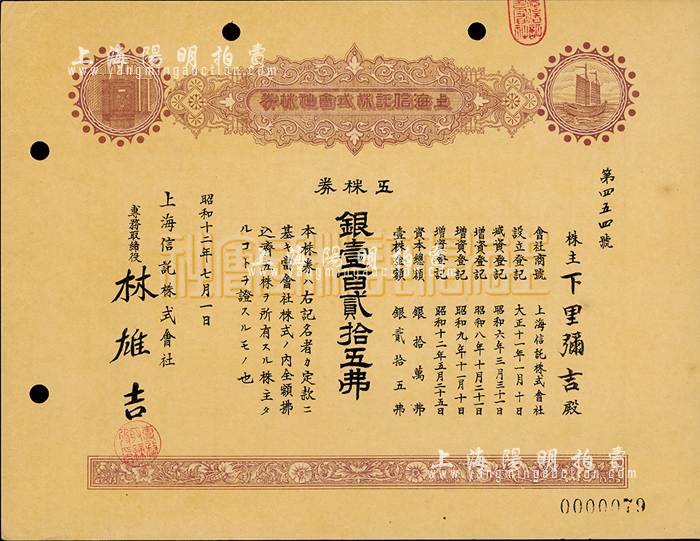 上海陽明拍賣
www.yangmingauction.com
上海信託株式會社株券
五株券
第四五四號
株主 下里彌吉殿
會社商號 上海信託株式會社
設立登記 大正十一年一月十日
減資登記 昭和六年三月三十一日
增資登記 昭和八年十月二十一日
增資登記 昭和九年十一月十日
增資登記 昭和十二年五月二十五日
資本總額 銀拾萬弗
壹株金額 銀貳拾五弗
銀壹百貳拾五弗
本株券ハ右記名者カ定款ニ
基キ當會社株式ノ內全額拂
込濟五株ヲ所有スル株主タ
ルコトヲ證スルモノ也
昭和十二年七月一日
上海信託株式會社
專務取締役 林雄吉
上海陽明拍賣
www.yangmingauction.com
0000079